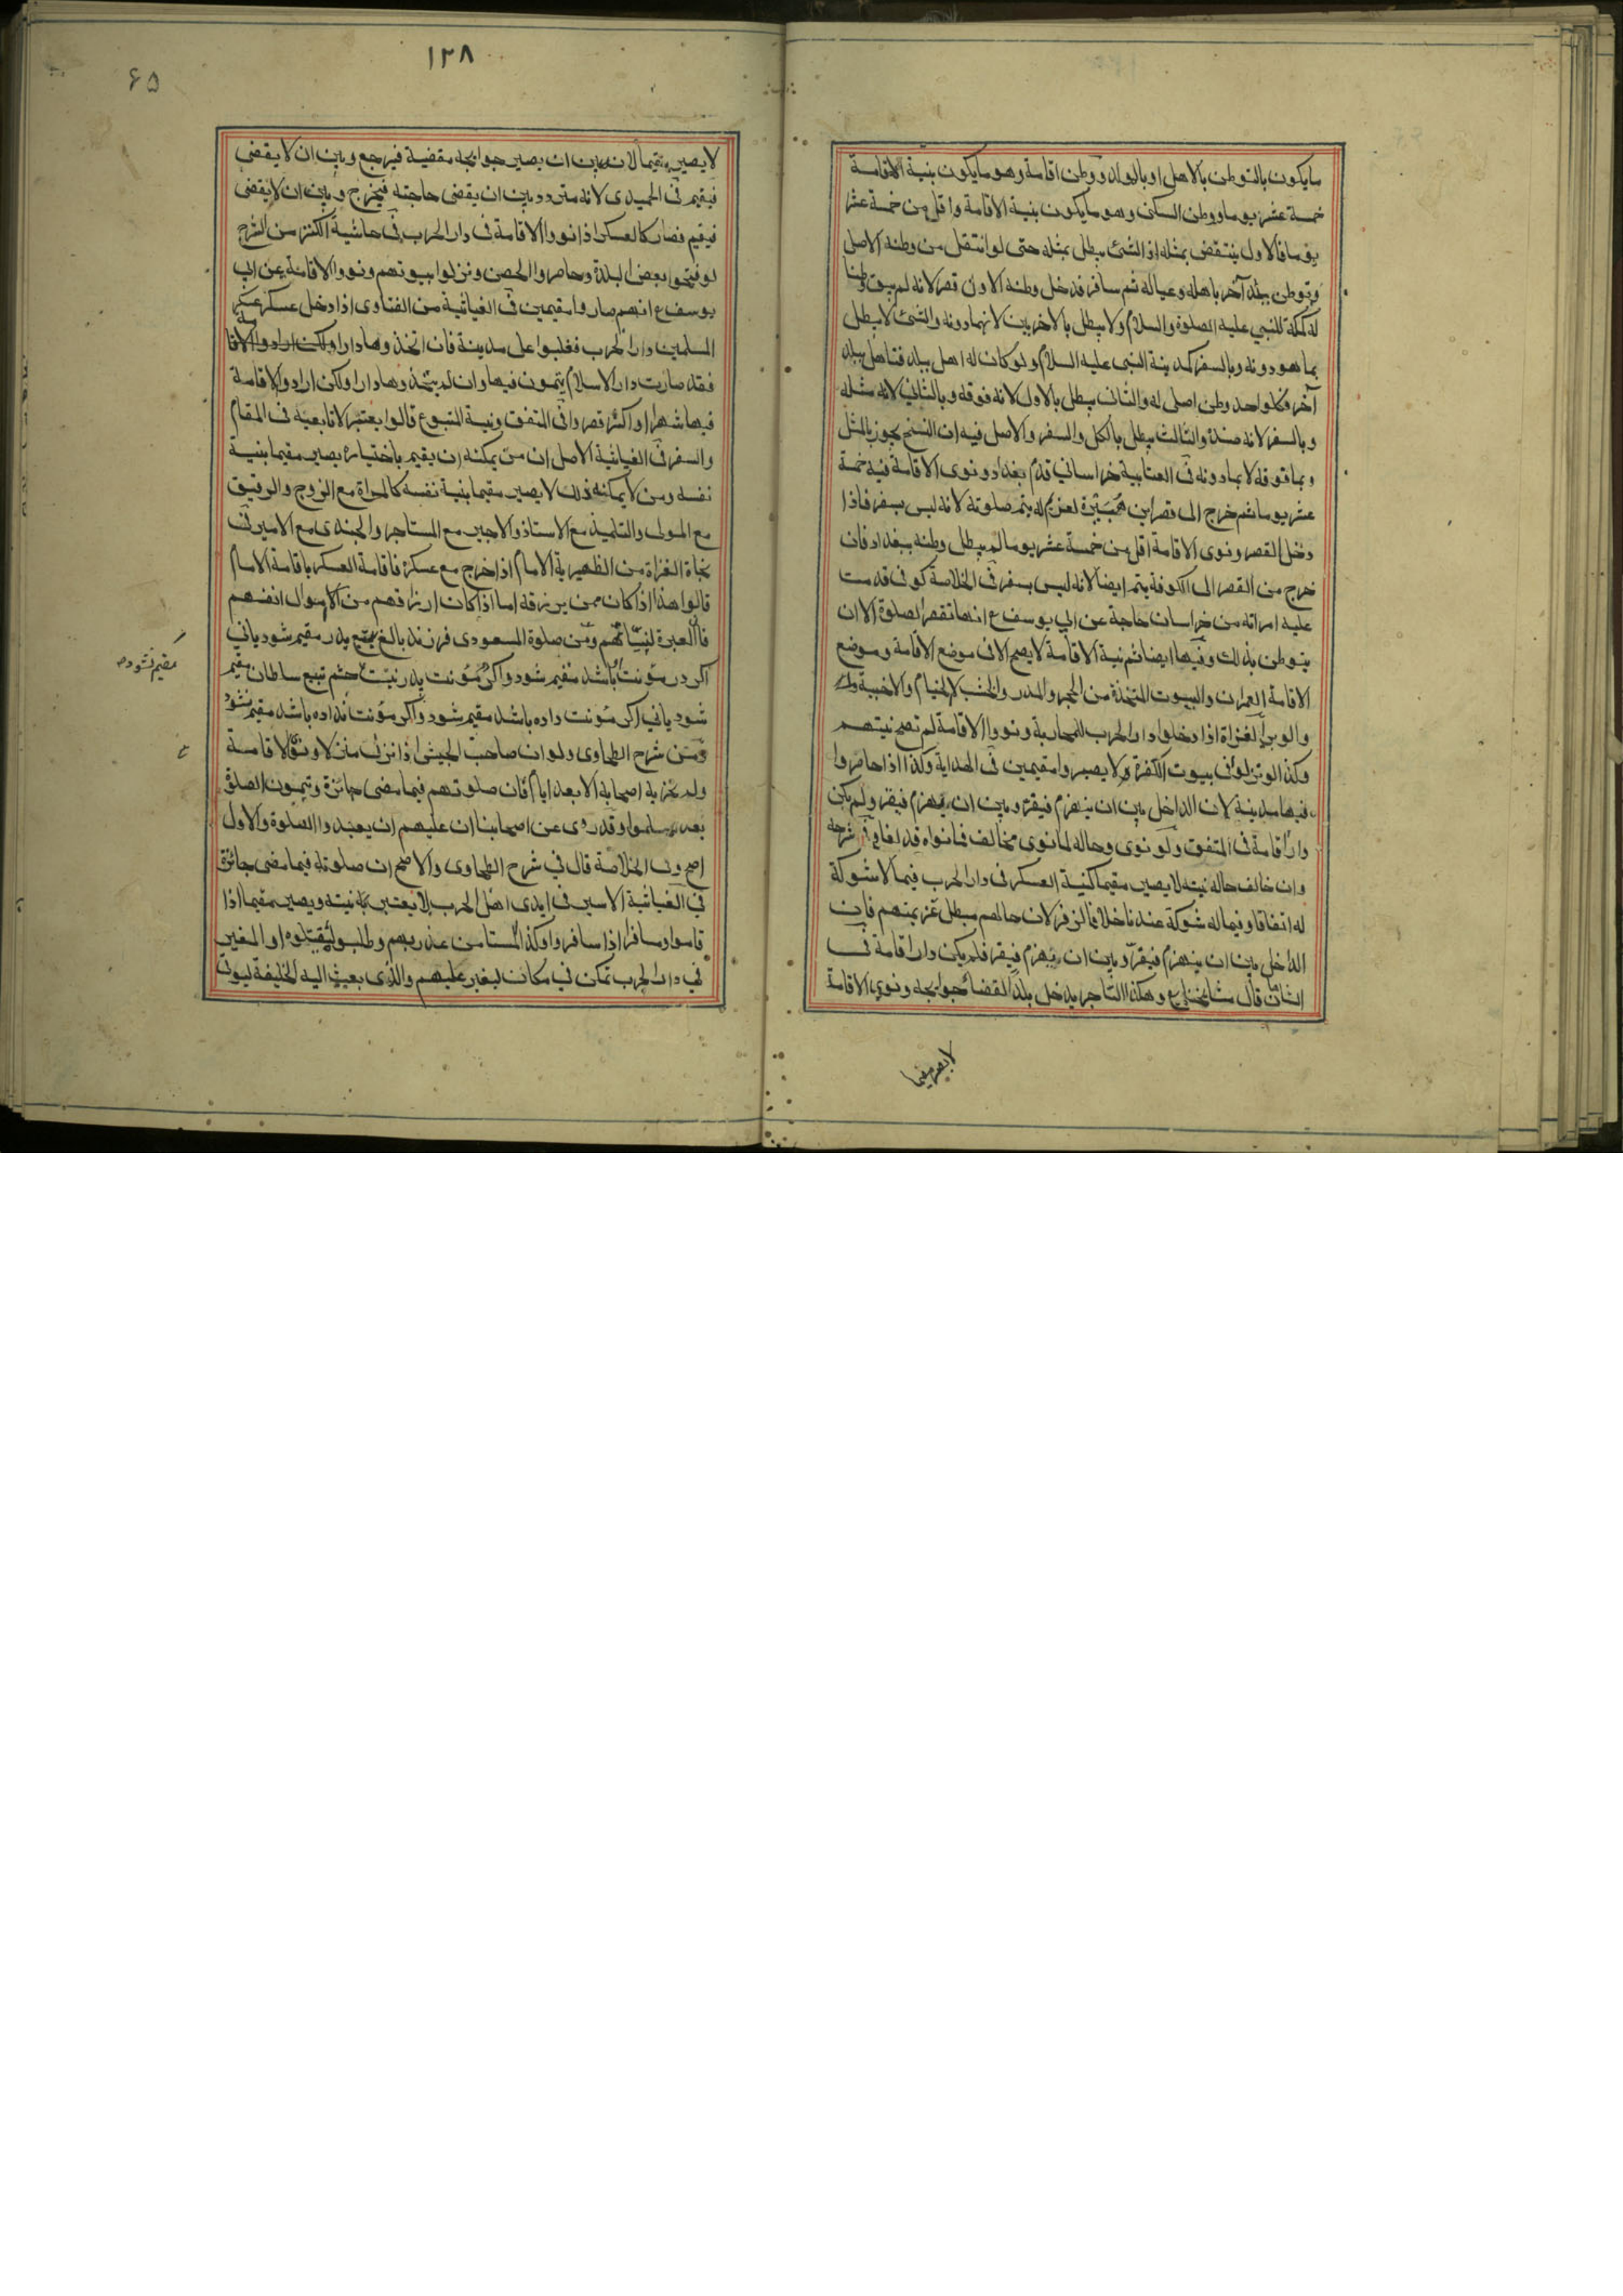 مايكون بالتوطن بالاهل او بالولاد ووطن اقامة وهو مايكون بنية الاقامة
خمسة عشر يوما ووطن السكنى وهو مايكون بنية الاقامة واقل من خمسة عشر
يوما فالاول ينتقض بمثله اذ الشئ يبطل بمثله حتى لو انتقل من وطنه الاصل
وتوطن ببلد آخر باهله وعياله ثم سافر فدخل وطنه الاول قصر لانه لم يبق وطنا
له كمكة للنبي عليه الصلوة والسلام ولا يبطل بالاخريين لانهما دونه والشئ لا يبطل
بما هو دونه وبالسفر كمدينة النبى عليه السلام ولو كان له اهل ببلد فتاهل ببلد
آخر فكلواحد وطن اصلى له والثانى يبطل بالاول لانه فوقه وبالثاني لانه مثله
وبالسفر لانه ضده والثالث يبطل بالكل والسفر والاصل فيه ان النسخ يجوز بالمثل
وبما فوقه لا بما دونه فى العتابية خراساني قدم بغداد ونوى الاقامة فيه خمسة
عشر يوما ثم خرج الى قصر ابن هبيرة لغريم له يتم صلوته لانه ليس بسفر فاذا
دخل القصر ونوى الاقامة اقل من خمسة عشر يوما لم يبطل وطنه ببغداد فان
خرج من القصر الى الكوفة يتم ايضا لانه ليس بسفر فى الخلاصة كوفى قدمت
عليه امراته من خراسان حاجة عن ابي يوسف ع انها تقصر الصلوة الا ان
يتوطن بذلك وفيها ايضا ثم نية الاقامة لا يصح الا فى موضع الاقامة وموضع
الاقامة العمران والبيوت المتخذة من الحجر والمدر والخشب لا الخيام والاخبية
والوبر الغزاة اذا دخلوا دار الحرب للمحاربة ونووا الاقامة لم تصح نيتهم
وكذا لو نزلوا فى بيوت الكفرة ولا يصيروا مقيمين فى الهداية وكذا اذا حاصروا
فيها مدينة لان الداخل بين ان ينهزم فيفر وبين ان يهزم فيقر ولم يكن
دار اقامة فى المتفق ولو نوى وحاله لما نوى مخالف فما نواه قد لغا وفى شرحه
وان خالف حاله نيته لا يصير مقيما كنية العسكر فى دار الحرب فيما لا شوكة
له اتفاقا وفيما له شوكة عندنا خلافا لزفر لان حالهم مبطل عزيمتهم فان
الداخل بين ان ينهزم فيفر وبين ان يهزم فيقر فلم يكن دار اقامة فى
الشان قال مشايخنا ع وهكذا التاجر يدخل بلد القضاء حوايجه ونوى الاقامة
لا يصير مقيما
١٢٨
٦٥
لا يصير مقيما لانه بين ان يصير حوايجه مقضية فيرجع وبين ان لا يقضى
فيقيم فى الحميدى لانه متردد بين ان يقضى حاجته فيخرج وبين ان لا يقضى
فيقيم فصار كالعسكر اذا نووا الاقامة فى دار الحرب فى حاشية الكنز من الشرح
لو فتحوا بعض البلدة وحاصروا الحصن ونزلوا بيوتهم ونووا الاقامة عن ابي
يوسف ع انهم صاروا مقيمين فى الغياثية من الفتاوى اذا دخل عسكر
المسلمين دار الحرب فغلبوا على مدينة فان اتخذوها دارا ولكن ارادوا الاقا
فقد صارت دار الاسلام يتمون فيها وان لم يتخذوها دارا ولكن ارادوا الاقامة
فيها شهرا او اكثر قصروا فى المتفق ونية المتبوع قالوا يعتبر لا تابعيه فى المقام
والسفر فى الغياثية الاصل ان من يمكنه ان يقيم باختياره يصير مقيما بنية
نفسه ومن لا يمكنه ذلك لا يصير مقيما بنية نفسه كالمراة مع الزوج والرقيق
مع المولى والتلميذ مع الاستاذ والاجير مع المستاجر والجندى مع الامير فى
نجاة الغزاة من الظهيرية الامام اذا خرج مع عسكره فاقامة العسكر باقامة الامام
قالوا هذا اذا كان ممن يرزقه اما اذا كان ارزاقهم من اموال انفسهم
فالعبرة لنياتهم ومن صلوة المسعودى فرزند بالغ بتبع پدر مقيم شود يانى
اكر در مؤنت باشد مقيم شود واكر مؤنت پدر نيست حشم تبع سلطان مقيم
شود يانى اكر مؤنت داده باشد مقيم شود واكر مؤنت نداده باشد مقيم نشود
ومن شرح الطحاوى ولو ان صاحب الجيش اذا نزل منزلا ونوى الاقامة
ولم يخبر به اصحابه الا بعد ايام فان صلوتهم فيما مضى جائزة ويتمون الصلوة
بعد وقد روى عن اصحابنا ان عليهم ان يعيدوا الصلوة والاول
اصح وفى الخلاصة قال فى شرح الطحاوى والاصح ان صلوته فيما مضى جائزة
فى الغياثية الاسير فى ايدى اهل الحرب لا يعتبر نيته ويصير مقيما اذا
قاموا ومسافرا اذا سافروا وكذا المستامن غدر بهم وطلبوا ليقتلوه او المغير
فى دار الحرب تمكن في مكان ليغير عليهم والذى بعث اليه الخليفة ليوتى
مقيم نشود